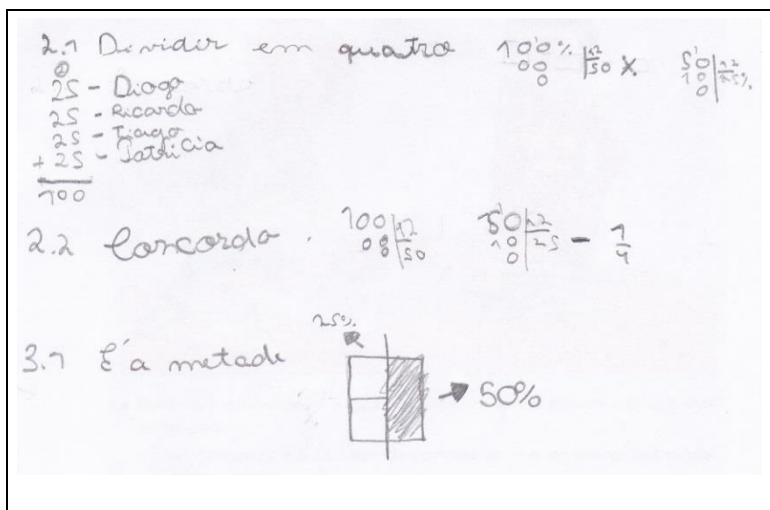 2.1 Dividir em quatro 100% |2 50 x 50 |2 25%
00 10
0 0
25 - Diogo
25 - Ricardo
25 - Tiago
+ 25 - Patricia
100
2.2 Concordo. 100 |2 50 50 |2 25 - 1/4
00 10
0 0
25%
3.1 É a metade
50%